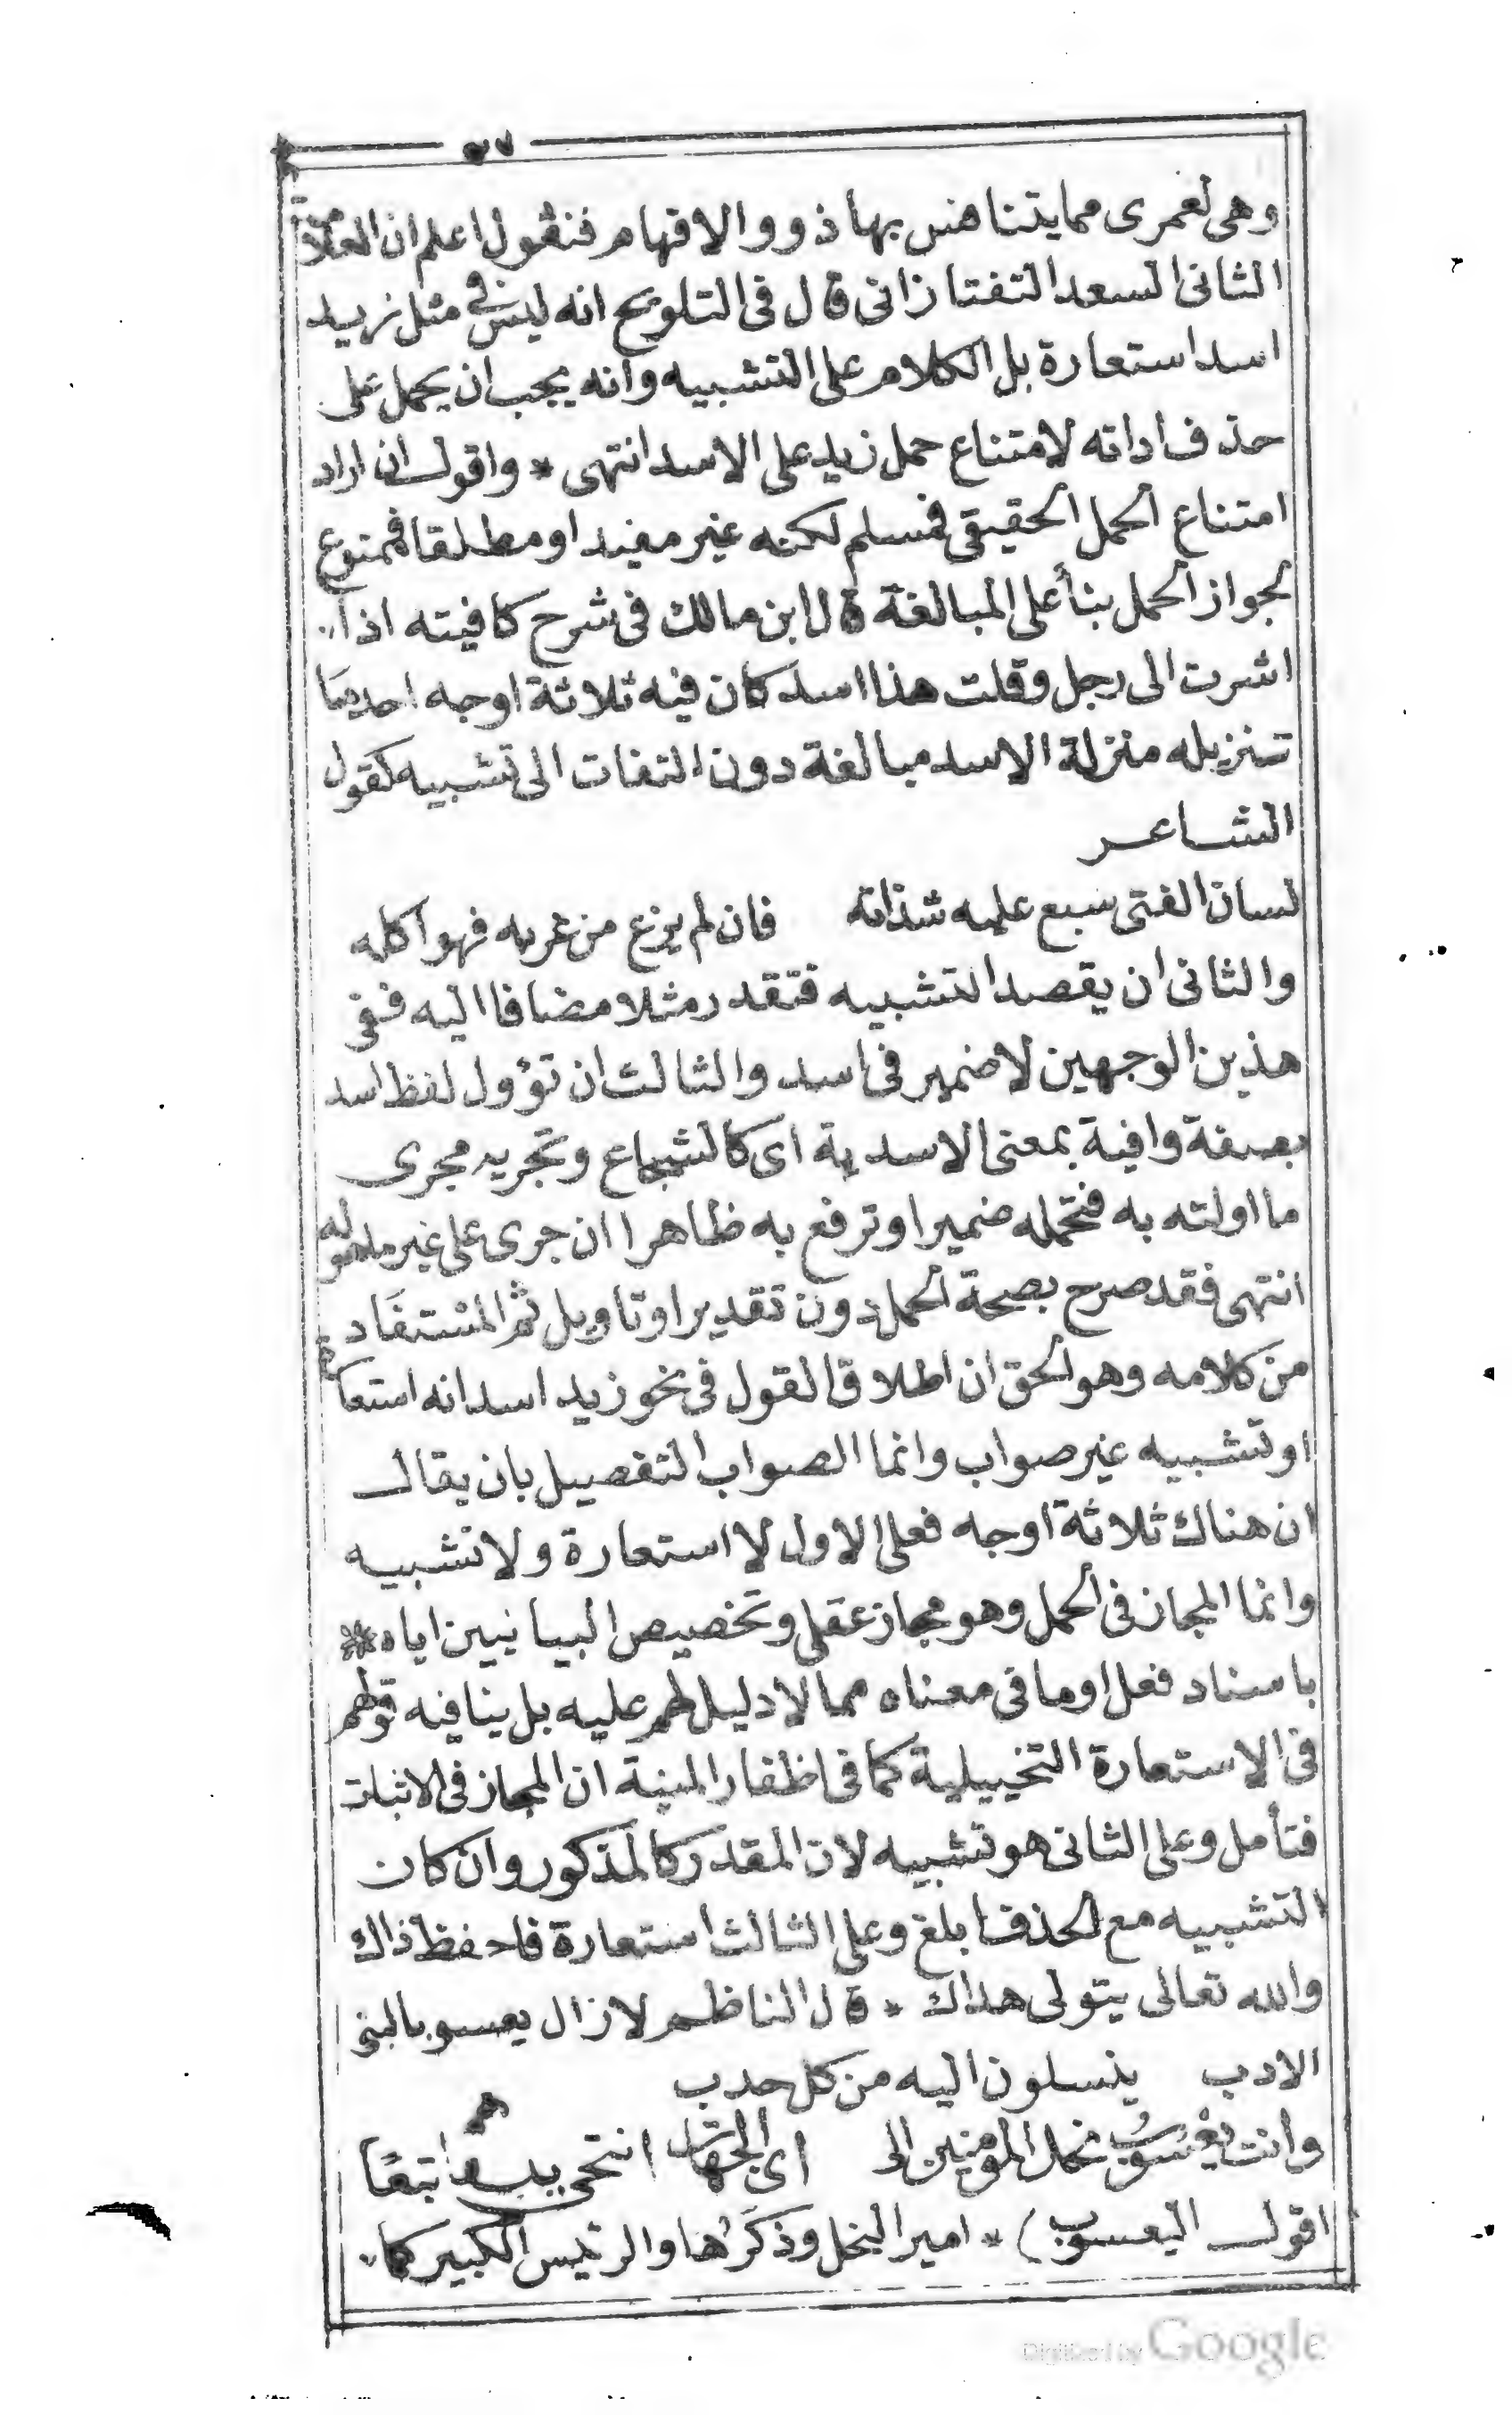 وهى لعمرى مما يتنا هنس بها ذوو الافهام فنقول اعلم ان العلامة
الثانى السعد التفتا زانى قال فى التلويح انه ليس فى مثل زيد
اسد استعارة بل الكلام على التشبيه وانه يجب ان يحمل على
حذف اداته لامتناع حمل زيد على الاسد انتهى * واقول ان اراد
امتناع الحمل الحقيقى فمسلم لكنه غير مفيد او مطلقا فممنوع
لجواز الحمل بنأ على المبالغة قال ابن مالك فى شرح كافيته اذا
اشرت الى رجل وقلت هذا اسد كان فيه ثلاثة اوجه احدها
تنزيله منزلة الاسد مبالغة دون التفات الى تشبيه كقول
الشاعر
لسان الفتى سبع عليه شذاته فان لم يزع من غربه فهو آكله
والثانى ان يقصد التشبيه فتقدر مثلا مضافا اليه ففى
هذين الوجهين لا ضمير فى اسد والثالث ان تؤول لفظ اسد
بصفة وافية بمعنى الاسدية اى كالشجاع وتجريه مجرى
ما اولته به فتحمله ضميرا وترفع به ظاهرا ان جرى على غير ما هو له
انتهى فقد صرح بصحة الحمل دون تقدير او تاويل ثم المستفاد
من كلامه وهو الحق ان اطلاق القول فى نحو زيد اسد انه استعارة
او تشبيه غير صواب وانما الصواب التفصيل بان يقال
ان هناك ثلاثة اوجه فعلى الاول لا استعارة ولا تشبيه
وانما المجاز فى الحمل وهو مجاز عقلى وتخصيص البيانيين اياه *
باسناد فعل او ما فى معناه مما لا دليل لهم عليه بل ينافيه قولهم
فى الاستعارة التخييلية كما فى اظفار المنية ان المجاز فى الاثبات
فتأمل وعلى الثانى هو تشبيه لان المقدر كالمذكور وان كان
التشبيه مع الحذف ابلغ وعلى الثالث استعارة فاحفظ ذاك
والله تعالى يتولى هداك * قال الناظم لا زال يعسوبا لبنى
الادب ينسلون اليه من كل حدب
وانت يعسوب نحل المؤمنين الى اى الجهات انتحى يسدا تبعًا
اقول اليعسوب) * امير النحل وذكرها والرئيس الكبير كما
Digitized by Google